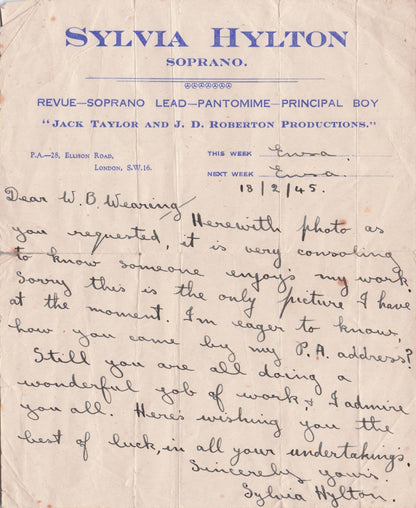 SYLVIA HYLTON
SOPRANO.
REVUE—SOPRANO LEAD—PANTOMIME—PRINCIPAL BOY
"JACK TAYLOR AND J. D. ROBERTON PRODUCTIONS."
P.A.—28, ELLISON ROAD,
LONDON, S.W.16.
THIS WEEK Ensa.
NEXT WEEK Ensa.
18/2/45.
Dear W. B. Wearing/
Herewith photo as
you requested, it is very consoling
to know someone enjoys my work.
Sorry this is the only picture I have
at the moment. I'm eager to know,
how you came by my P.A. address?
Still you are all doing a
wonderful job of work, & I admire
you all. Here's wishing you the
best of luck, in all your undertakings.
Sincerely yours.
Sylvia Hylton.